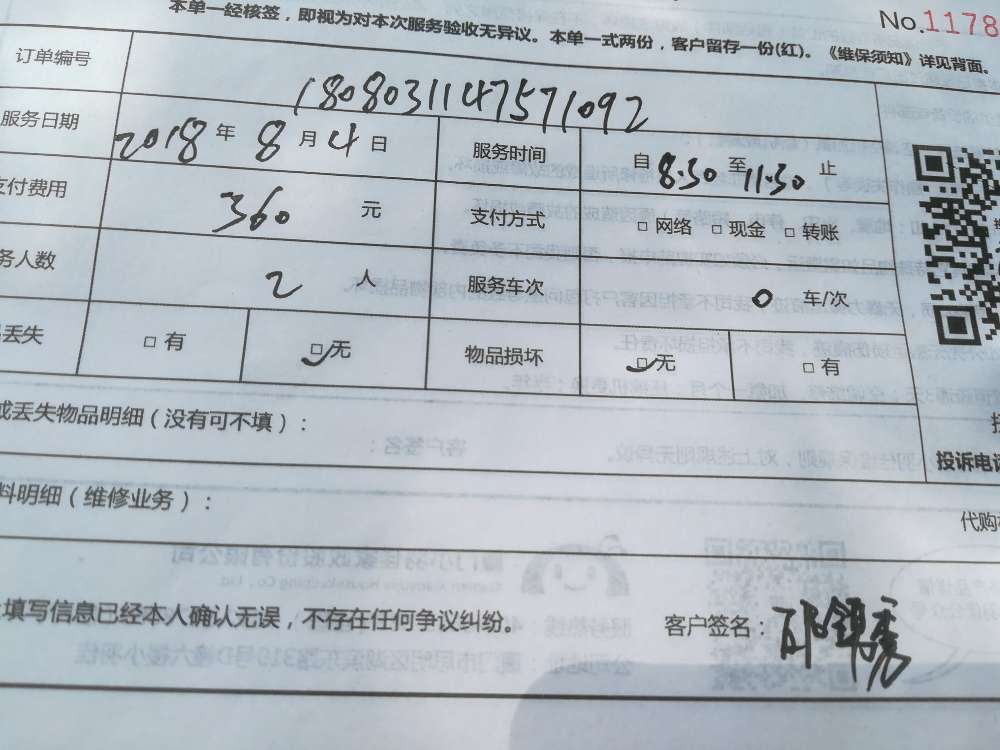 本单一经核签，即视为对本次服务验收无异议。本单一式两份，客户留存一份(红)。《维保须知》详见背面。
No.1178
订单编号 1808031147571092
服务日期 2018 年 8 月 4 日 服务时间 自 8:30 至 11:30 止
支付费用 360 元 支付方式 □ 网络 □ 现金 □ 转账
务人数 2 人 服务车次 0 车/次
丢失 □ 有 □无 物品损坏 □无 □ 有
或丢失物品明细（没有可不填）：
投诉电话
料明细（维修业务）：
代购
填写信息已经本人确认无误，不存在任何争议纠纷。 客户签名：邱锦秀